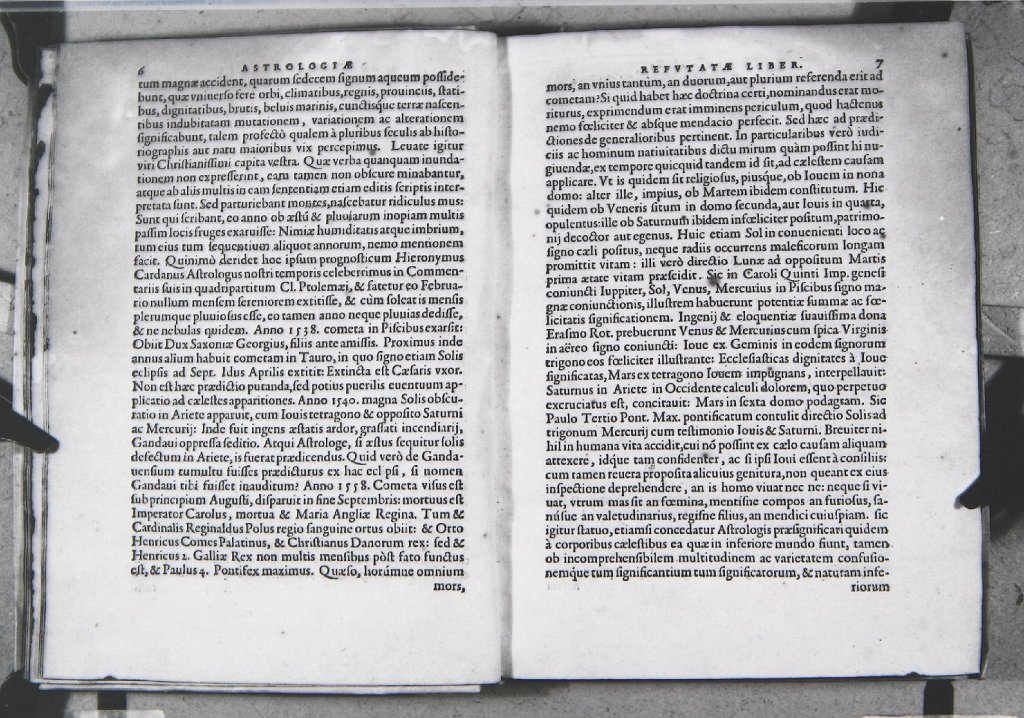 6 ASTROLOGIÆ
tum magnæ accident, quarum ſedecem ſignum aqueum poſside-
bunt, quæ vniuerſo fere orbi, climatibus, regnis, prouinciis, ſtati-
bus, dignitatibus, brutis, beluis marinis, cunctiſque terræ naſcen-
tibus indubitatam mutationem, variationem ac alterationem
ſignificabunt, talem profectò qualem à pluribus ſeculis ab hiſto-
riographis aut natu maioribus vix percepimus. Leuate igitur
viri Chriſtianiſsimi capita veſtra. Quæ verba quanquam inunda-
tionem non expreſſerint, eam tamen non obſcure minabantur,
atque ab aliis multis in eam ſententiam etiam editis ſcriptis inter-
pretata ſunt. Sed parturiebant montes, naſcebatur ridiculus mus:
Sunt qui ſcribant, eo anno ob æſtū & pluuiarum inopiam multis
paſsim locis fruges exaruiſſe: Nimiæ humiditatis atque imbrium,
tum eius tum ſequentium aliquot annorum, nemo mentionem
facit. Quinimò deridet hoc ipſum prognoſticum Hieronymus
Cardanus Aſtrologus noſtri temporis celeberrimus in Commen-
tariis ſuis in quadripartitum Cl. Ptolemæi, & fatetur eo Februa-
rio nullum menſem ſereniorem extitiſſe, & cùm ſoleat is menſis
plerumque pluuioſus eſſe, eo tamen anno neque pluuias dediſſe,
& ne nebulas quidem. Anno 1538. cometa in Piſcibus exarſit:
Obiit Dux Saxoniæ Georgius, filiis ante amiſsis. Proximus inde
annus alium habuit cometam in Tauro, in quo ſigno etiam Solis
eclipſis ad Sept. Idus Aprilis extitit: Extincta eſt Cæſaris vxor.
Non eſt hæc prædictio putanda, ſed potius puerilis euentuum ap-
plicatio ad cæleſtes apparitiones. Anno 1540. magna Solis obſcu-
ratio in Ariete apparuit, cum Iouis tetragono & oppoſito Saturni
ac Mercurij: Inde fuit ingens æſtatis ardor, graſſati incendiarij,
Gandaui oppreſſa ſeditio. Atqui Aſtrologe, ſi æſtus ſequitur ſolis
defectum in Ariete, is fuerat prædicendus. Quid verò de Ganda-
uenſium tumultu fuiſſes prædicturus ex hac ecl pſi, ſi nomen
Gandaui tibi fuiſſet inauditum? Anno 1558. Cometa viſus eſt
ſub principium Auguſti, diſparuit in fine Septembris: mortuus eſt
Imperator Carolus, mortua & Maria Angliæ Regina. Tum &
Cardinalis Reginaldus Polus regio ſanguine ortus obiit: & Otto
Henricus Comes Palatinus, & Chriſtianus Danorum rex: ſed &
Henricus 2. Galliæ Rex non multis menſibus pòſt fato functus
eſt, & Paulus 4. Pontifex maximus. Quæſo, horúmne omnium
mors,
REFVTATÆ LIBER. 7
mors, an vnius tantùm, an duorum, aut plurium referenda erit ad
cometam? Si quid habet hæc doctrina certi, nominandus erat mo-
riturus, exprimendum erat imminens periculum, quod hactenus
nemo fœliciter & abſque mendacio perfecit. Sed hæc ad prædi-
ctiones de generalioribus pertinent. In particularibus verò iudi-
ciis ac hominum natiuitatibus dictu mirum quàm poſsint hi nu-
giuendæ, ex tempore quicquid tandem id ſit, ad cæleſtem cauſam
applicare. Vt is quidem ſit religioſus, piuſque, ob Iouem in nona
domo: alter ille, impius, ob Martem ibidem conſtitutum. Hic
quidem ob Veneris ſitum in domo ſecunda, aut Iouis in quarta,
opulentus: ille ob Saturnum ibidem infœliciter poſitum, patrimo-
nij decoctor aut egenus. Huic etiam Sol in conuenienti loco ac
ſigno cæli poſitus, neque radiis occurrens maleficorum longam
promittit vitam: illi verò directio Lunæ ad oppoſitum Martis
prima ætate vitam præſcidit. Sic in Caroli Quinti Imp. geneſi
coniuncti Iuppiter, Sol, Venus, Mercurius in Piſcibus ſigno ma-
gnæ coniunctionis, illuſtrem habuerunt potentiæ ſummæ ac fœ-
licitatis ſignificationem. Ingenij & eloquentiæ ſuauiſsima dona
Eraſmo Rot. prebuerunt Venus & Mercurius cum ſpica Virginis
in aëreo ſigno coniuncti: Ioue ex Geminis in eodem ſignorum
trigono eos fœliciter illuſtrante: Eccleſiaſticas dignitates à Ioue
ſignificatas, Mars ex tetragono Iouem impugnans, interpellauit:
Saturnus in Ariete in Occidente calculi dolorem, quo perpetuo
excruciatus eſt, concitauit: Mars in ſexta domo podagram. Sic
Paulo Tertio Pont. Max. pontificatum contulit directio Solis ad
trigonum Mercurij cum teſtimonio Iouis & Saturni. Breuiter ni-
hil in humana vita accidit, cui nō poſsint ex cælo cauſam aliquam
attexere, idque tam confidenter, ac ſi ipſi Ioui eſſent à conſiliis:
cum tamen reuera propoſita alicuius genitura, non queant ex eius
inſpectione deprehendere, an is homo viuat nec ne: neque ſi vi-
uat, vtrum mas ſit an fœmina, mentiſne compos an furioſus, ſa-
nuſue an valetudinarius, regiſne filius, an mendici cuiuſpiam. ſic
igitur ſtatuo, etiamſi concedatur Aſtrologis præſignificari quidem
à corporibus cæleſtibus ea quæ in inferiore mundo fiunt, tamen
ob incomprehenſibilem multitudinem ac varietatem confuſio-
nemque tum ſignificantium tum ſignificatorum, & naturam infe-
riorum